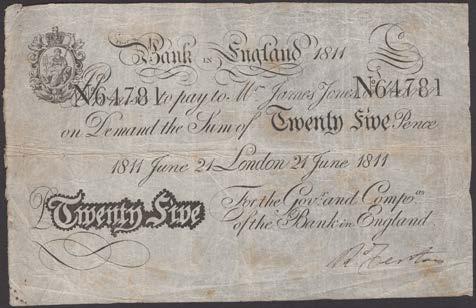 Bank in England 1811
No 64781 to pay to Mr James Jones No 64781
on Demand the Sum of Twenty Five Pence
1811 June 21 London 21 June 1811
£ Twenty Five
For the Govr. and Compa.
of the Bank in England